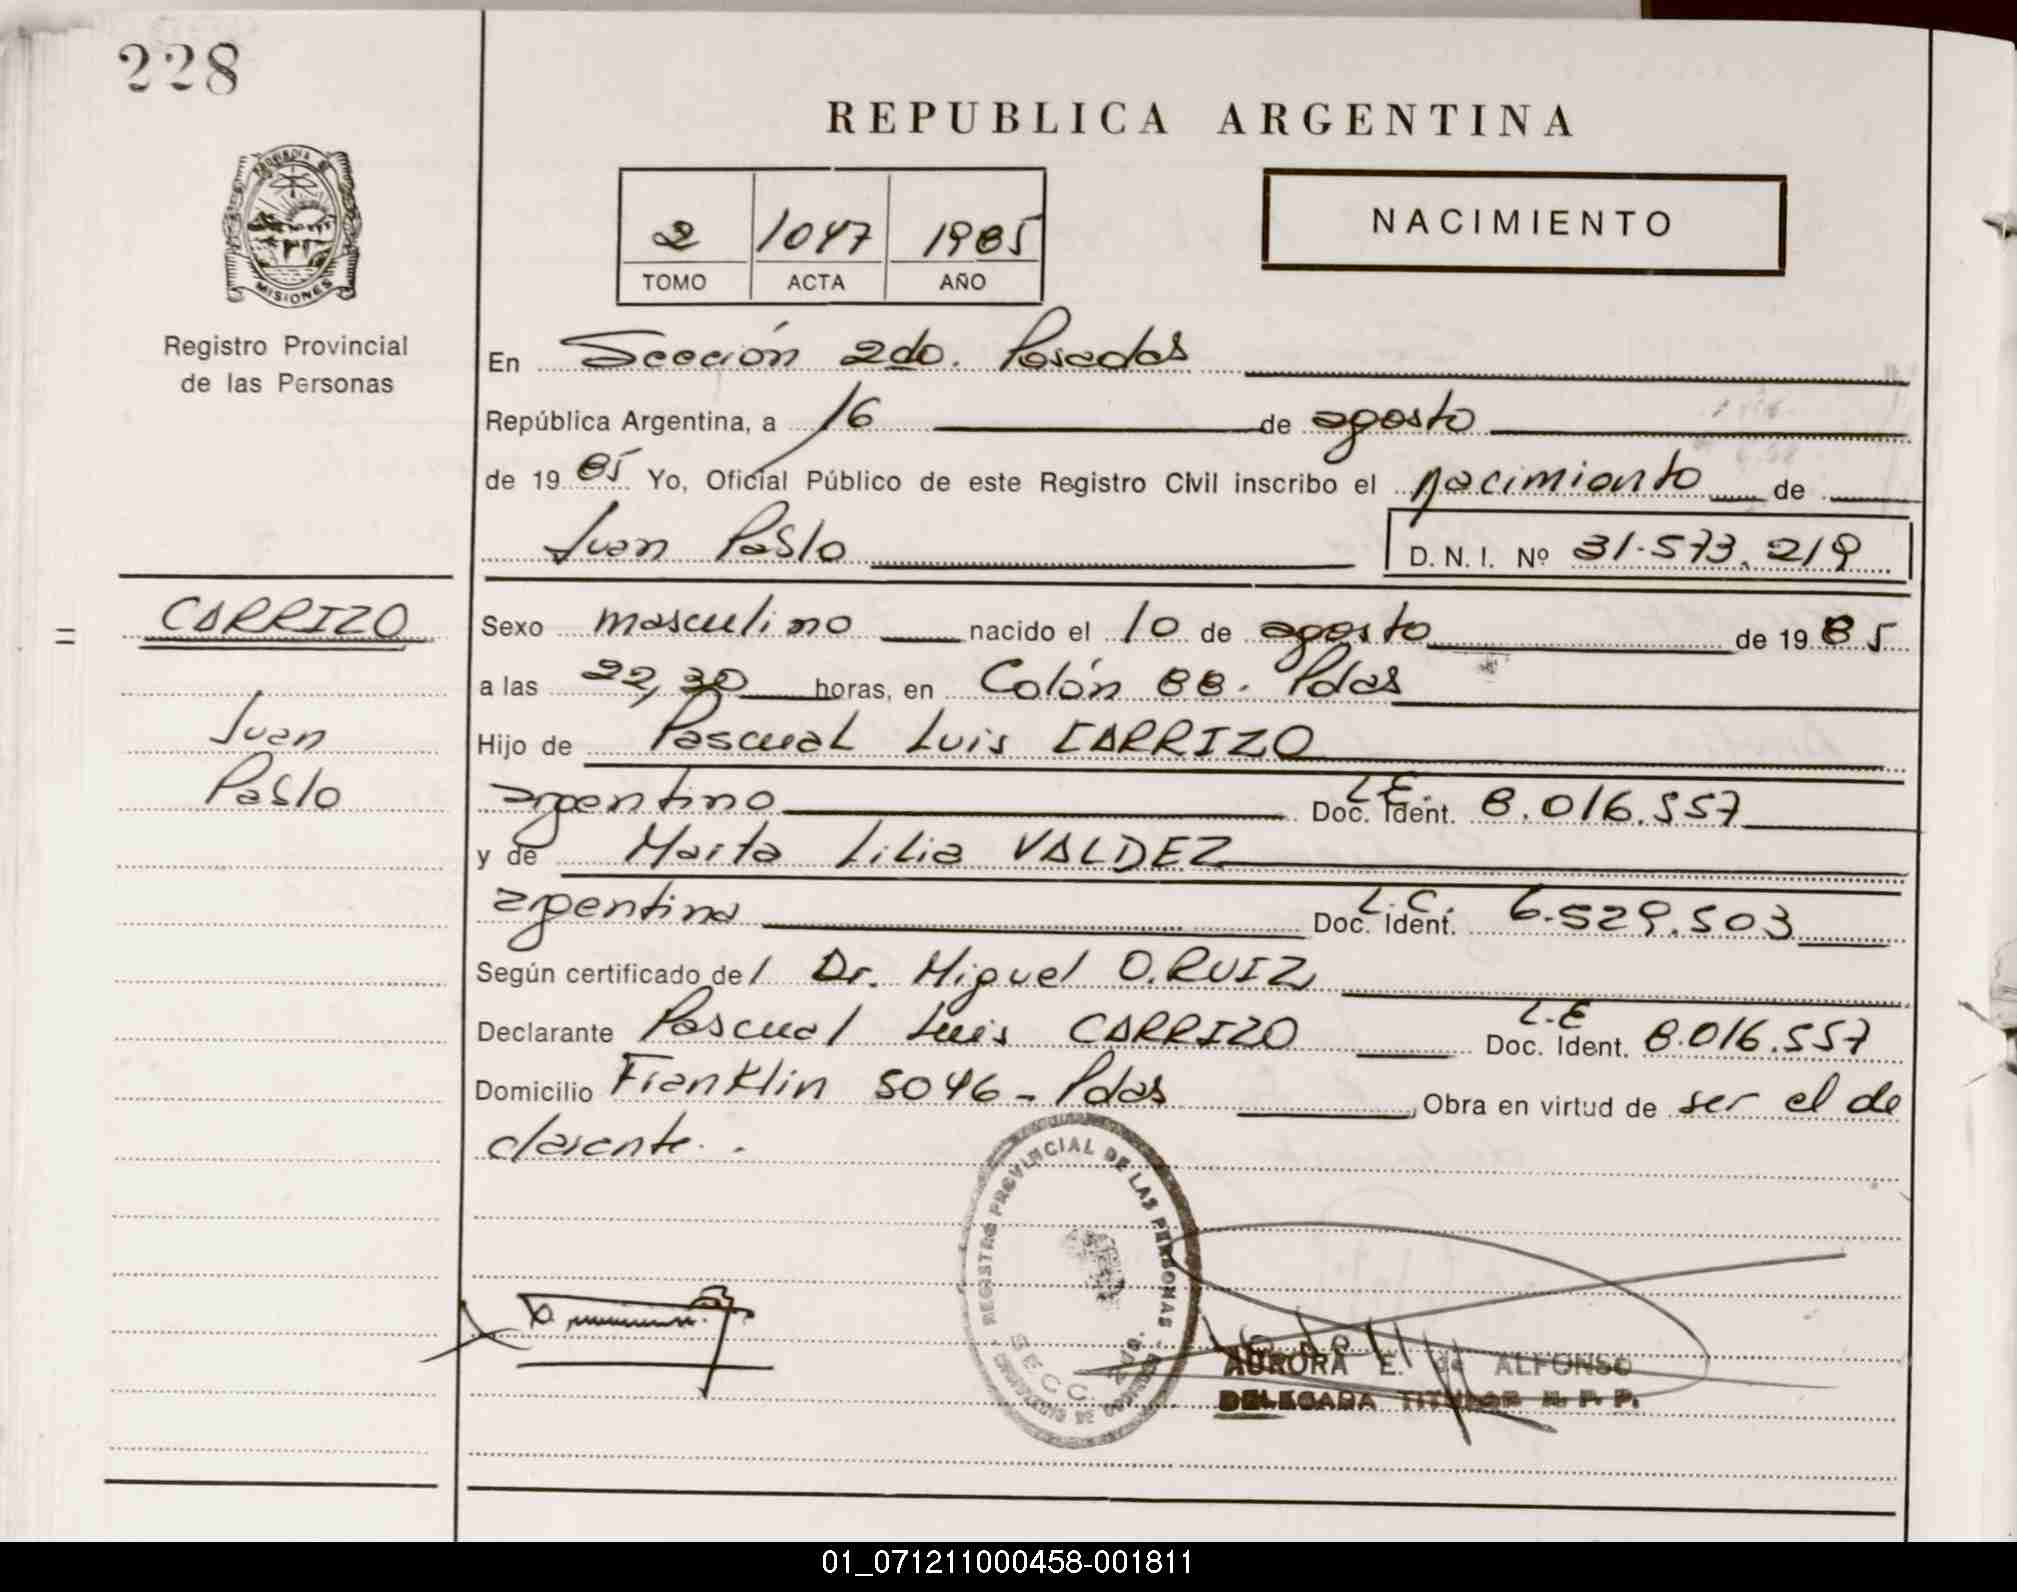 228
REPUBLICA ARGENTINA
PROVINCIA DE
MISIONES
Registro Provincial
de las Personas
2 1047 1985
TOMO ACTA AÑO
NACIMIENTO
En Sección 2do. Posadas
República Argentina, a 16 de agosto
de 1985 Yo, Oficial Público de este Registro Civil inscribo el nacimiento de
Juan Pablo D. N. I. Nº 31.573.219
= CARRIZO
Juan
Pablo
Sexo masculino nacido el 10 de agosto de 1985
a las 22,30 horas, en Colón 88. Pdas
Hijo de Pascual Luis CARRIZO
argentino Doc. Ident. L.E. 8.016.557
y de Marta Lilia VALDEZ
argentina Doc. Ident. L.C. 6.529.503
Según certificado del Dr. Miguel O. RUIZ
Declarante Pascual Luis CARRIZO Doc. Ident. L.E 8.016.557
Domicilio Franklin 5046 - Pdas, Obra en virtud de ser el de
clarante.
REGISTRO PROVINCIAL DE LAS PERSONAS
SECC.
AURORA E. de ALFONSO
DELEGADA TITULAR R. P. P.
01_071211000458-001811